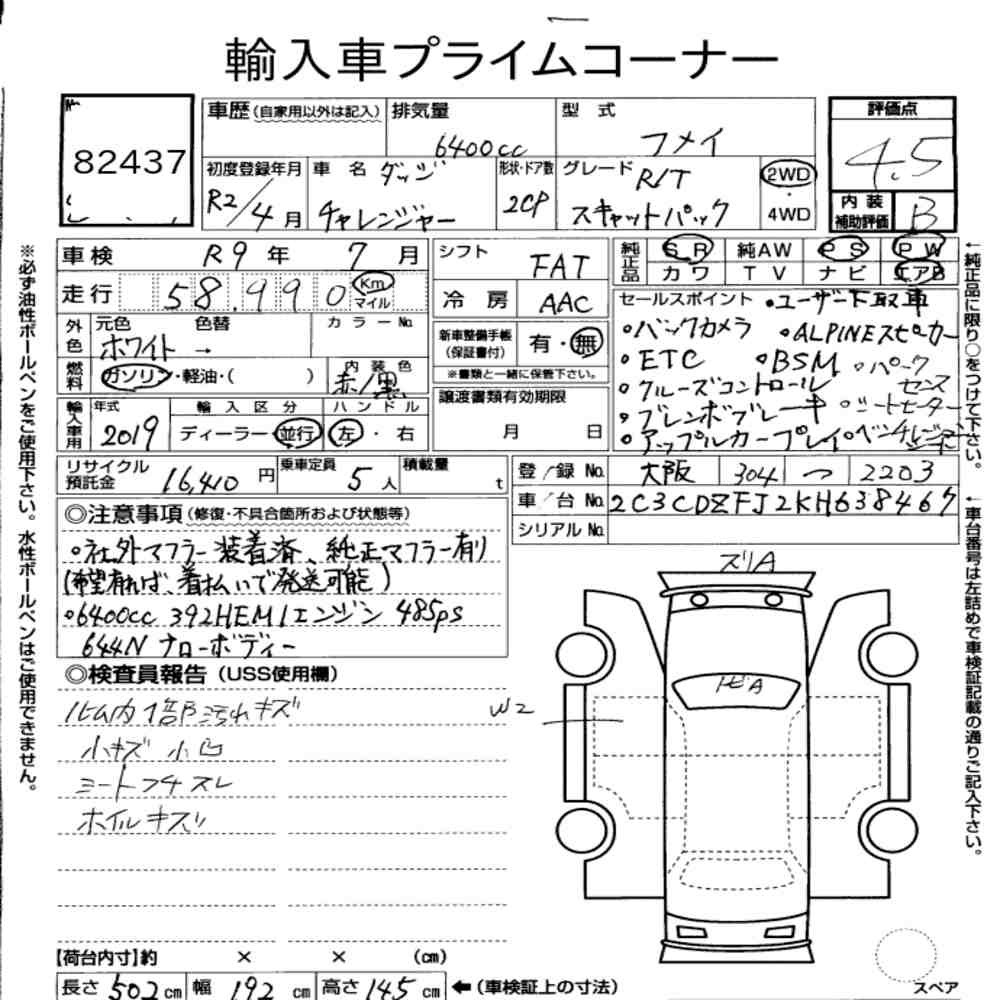 輸入車プライムコーナー
82437
車歴(自家用以外は記入) 排気量 6400cc 型式 フメイ 評価点 4.5
初度登録年月 R2/4月 車名 ダッジ チャレンジャー 形状・ドア数 2CP グレード R/T スキャットパック 2WD・4WD
内装補助評価 B
車検 R9年7月 シフト FAT
純正品 SR 純AW PS PW
カワ TV ナビ エアB
走行 58,990 Km マイル 冷房 AAC
外色 元色 ホワイト 色替 → カラーNo.
燃料 ガソリン・軽油・( ) 内装色 赤/黒
新車整備手帳(保証書付) 有・無
※書類と一緒に保管下さい。
譲渡書類有効期限 月 日
輸入車用 年式 2019 輸入区分 ディーラー・並行 ハンドル 左・右
セールスポイント •ユーザー下取車
•バックカメラ •ALPINEスピーカー
•ETC •BSM •パーク
•クルーズコントロール センス
•ブレンボブレーキ •シートヒーター
•アップルカープレイ
リサイクル預託金 16,410円 乗車定員 5人 積載量 t
登/録No. 大阪 304 つ 2203
車/台No. 2C3CDZFJ2KH638467
シリアルNo.
◎注意事項(修復・不具合箇所および状態等)
•社外マフラー装着済、純正マフラー有り
(希望有れば、着払いで発送可能)
•6400cc 392HEMIエンジン 485ps
644N ナローボディー
◎検査員報告(USS使用欄)
小キズ 小凹
ホイルキズ
ズリA
トビA
W2
【荷台内寸】約 × × (cm)
長さ 502cm 幅 192cm 高さ 145cm ←(車検証上の寸法)
スペア
※必ず油性ボールペンをご使用下さい。水性ボールペンはご使用できません。
←純正品に限り○をつけて下さい。
←車台番号は左詰めで車検証記載の通りご記入下さい。